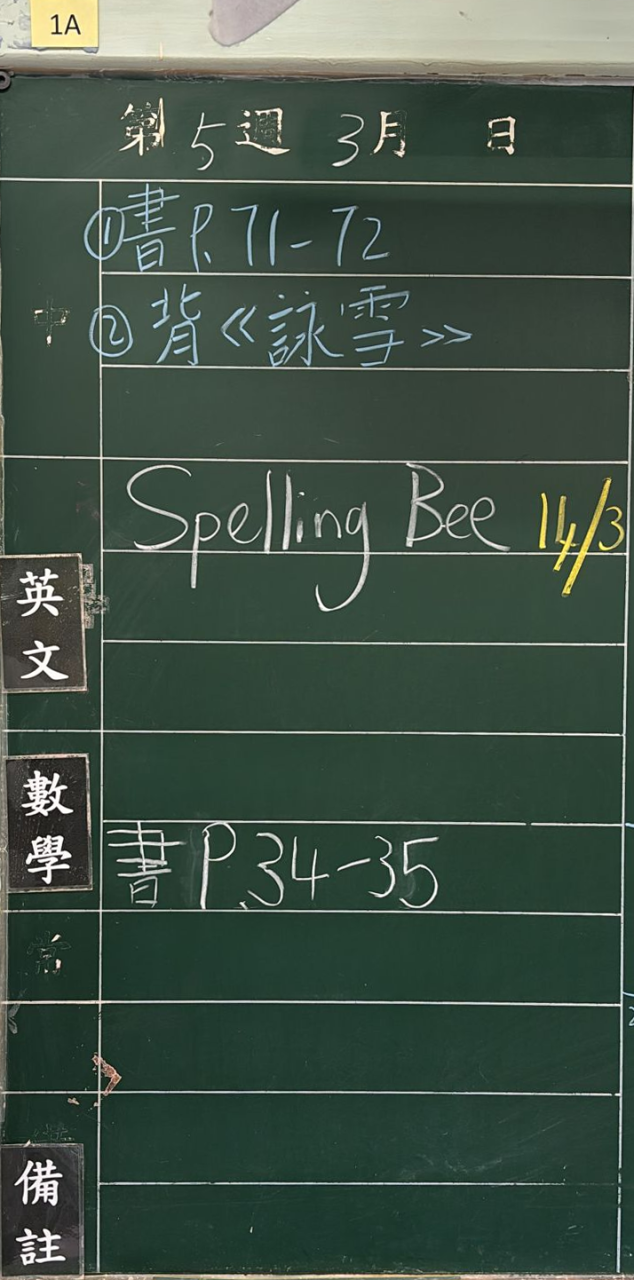 1A
第5週 3月 日
①書P.71-72
中
②背《詠雪》
Spelling Bee 14/3
英文
數學
書P.34-35
常
備註